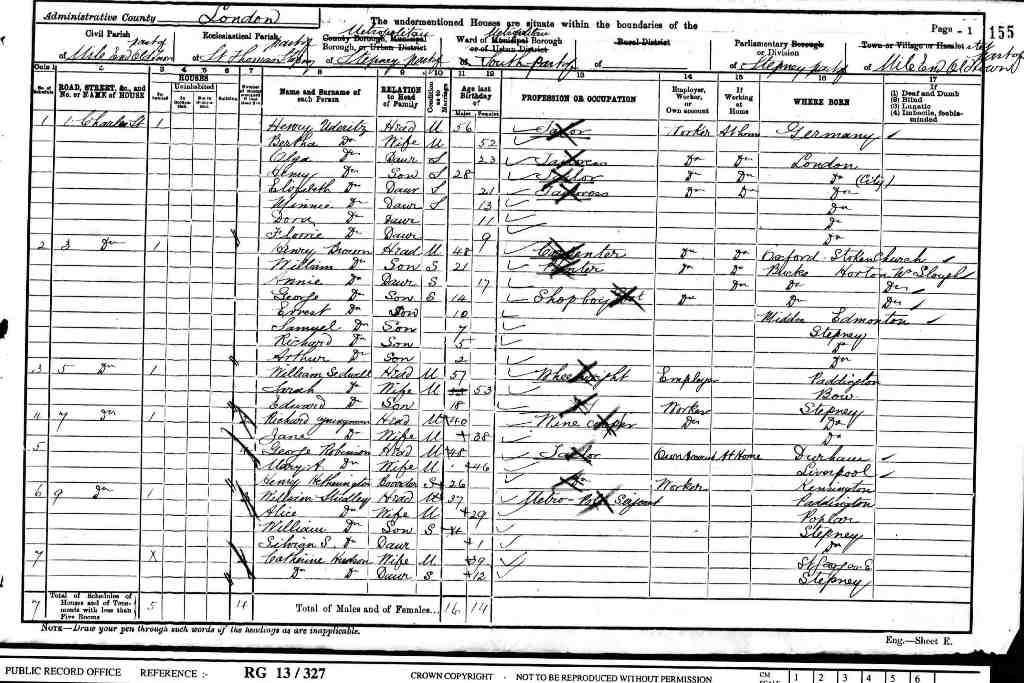 Administrative County London
The undermentioned Houses are situate within the boundaries of the
Page - 1
155
Civil Parish
Ecclesiastical Parish
County Borough, Municipal Borough, or Urban District
Metropolitan
Ward of Municipal Borough or of Urban District
Rural District
Parliamentary Borough or Division
Town or Village or Hamlet
part of
of Mile End Old Town
of St Thomas Stepney
of Stepney part of
of South part of
of
of Stepney part of
of Mile End Old Town
ROAD, STREET, &c., and No. or NAME of HOUSE
HOUSES
Uninhabited
Name and Surname of each Person
RELATION to Head of Family
Condition as to Marriage
Age last Birthday of
Males Females
PROFESSION OR OCCUPATION
Employer, Worker, or Own account
If Working at Home
WHERE BORN
If (1) Deaf and Dumb (2) Blind (3) Lunatic (4) Imbecile, feeble-minded
1 1 Charles St 1 Henry Uderitz Head M 56 Tailor Worker At Home Germany
Bertha Do Wife M 52
Olga Do Daur S 23 Tailoress Do Do London
Henry Do Son S 28 Tailor Do Do Do (City)
Elizabeth Do Daur S 21 Tailoress Do Do Do
Minnie Do Daur S 13 Do
Dora Do Daur 11 Do
Florrie Do Daur 9 Do
2 3 Do 1 Henry Brown Head M 48 Carpenter Do Do Oxford Stoken Church
William Do Son S 21 Do Do Bucks Horton Wr Slough
Annie Do Daur S 17 Do Do Do
George Do Son S 14 Shop boy Do Do Do
Ernest Do Son 10 Middx Edmonton
Samuel Do Son 7 Stepney
Richard Do Son 5 Do
Arthur Do Son 2 Do
3 5 Do 1 William Sedwell Head M 57 Wheelwright Employer Paddington
Sarah Do Wife M 53 Bow
Edward Do Son 18 Do Worker Stepney
4 7 Do 1 Richard Youngman Head M 40 Wine cooper Do Do
Jane Do Wife M 38 Do
5 George Robinson Head M 48 Tailor Own Account At Home Durham
Mary A. Do Wife M 46 Liverpool
Henry Hetherington Boarder S 26 Do Worker Kensington
6 9 Do 1 William Studley Head M 37 Metro- Police Sergeant Paddington
Alice Do Wife M 29 Poplar
William Do Son S Stepney
S. Do Daur 1 Do
7 X Catherine Hudson Wife M 39
Do Do Daur S 12 Stepney
7 Total of Schedules of Houses and of Tenements with less than Five Rooms 5 4 Total of Males and of Females... 16 14
NOTE—Draw your pen through such words of the headings as are inapplicable.
Eng.—Sheet E.
PUBLIC RECORD OFFICE REFERENCE :- RG 13/327 CROWN COPYRIGHT - NOT TO BE REPRODUCED WITHOUT PERMISSION
CM SCALE 1 2 3 4 5 6